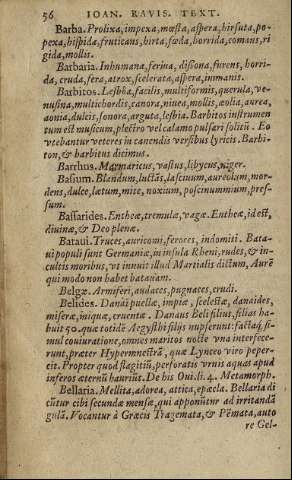 56 IOAN. RAVIS. TEXT.
Barba. Prolixa, impexa, mœsta, aspera, hirsuta, pe-
pexa, hispida, fruticans, hirta, fœda, horrida, comans, ri
gida, mollis.
Barbaria. Inhumana, ferina, dissona, furens, horri-
da, cruda, fera, atrox, scelerata, aspera, inhumanis.
Barbitos. Lesbia, facilis, multiformis, querula, ve-
nusina, multichordis, canora, niuea, mollis, æolia, aurea,
aonia, dulcis, sonora, arguta, lesbia. Barbitos instrumen
tum est musicum, plectro vel calamo pulsari solitū. Eo
vtebantur veteres in canendis versibus lyricis. Barbi-
ton, & barbitus dicimus.
Barrhus. Marmaricus, vastus, libycus, niger.
Basium. Blandum, luctās, lasciuum, aureolum, mor-
dens, dulce, lætum, mite, noxium, poscinummium, pres-
sum.
Bassarides. Entheæ, tremulæ, vagæ. Entheæ, id est,
diuinæ, & Deo plenæ.
Bataui. Truces, auricomi, feroces, indomiti. Bata-
ui populi sunt Germaniæ, in insula Rheni, rudes, & in-
cultis moribus, vt innuit illud Martialis dictum, Aurē
qui modo non habet batauam.
Belgæ. Armiferi, audaces, pugnaces, crudi.
Belides. Danai puellæ, impiæ, scelestæ, danaides,
miseræ, iniquæ, cruentæ. Danaus Beli filius, filias ha-
buit 50. quæ totidē Aegysthi filijs nupserunt: factaq́; si-
mul conuiuratione, omnes maritos nocte vna interfece-
runt, præter Hypermnestrā, quæ Lynceo viro peper-
cit. Propter quod flagitiū, perforatis vrnis aquas apud
inferos æternū hauriūt. De his Oui. li. 4. Metamorph.
Bellaria. Mellita, adorea, attica, epæcla. Bellaria di
cūtur cibi secundæ mensæ, qui apponūtur ad irritandā
gulā. Vocantur à Græcis Tragemata, & Pēmata, auto
re Gel-